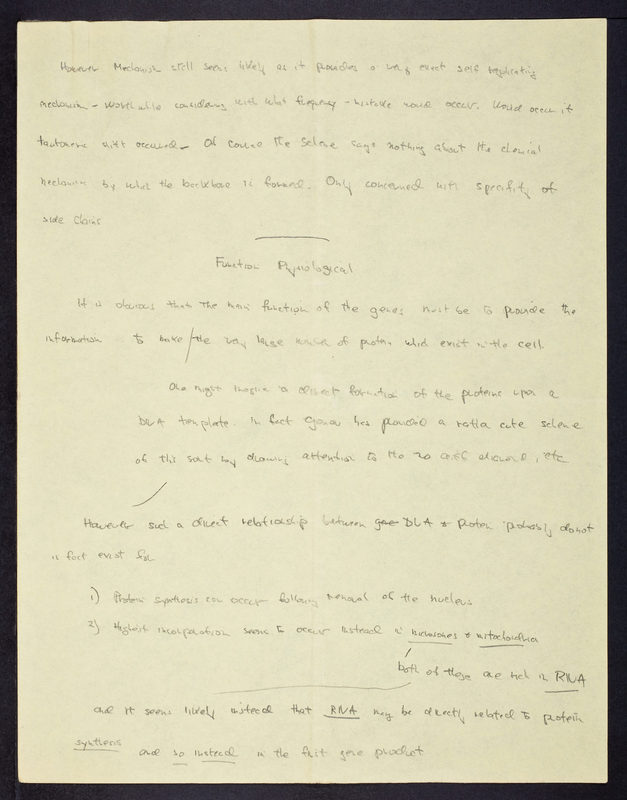 However Mechanism still seems likely as it provides a very exact self replicating
mechanism - worthwhile considering with what frequency - mistake would occur. Would occur if
tautomeric shift occurred - Of course the scheme says nothing about the chemical
mechanism by which the backbone is formed. Only concerned with specifity of
side chains
Function Physiological
It is obvious that the main function of the genes must be to provide the
information to make the very large number of protein which exist in the cell.
One might imagine a direct formation of the proteins upon a
DNA template. In fact Gamow has provided a rather cute scheme
of this sort by drawing attention to the 20 diamond, etc
However such a direct relationship between gene DNA & protein probably does not
in fact exist for
1) Protein synthesis can occur following removal of the nucleus
2) Highest incorporation seems to occur instead in microsomes & mitochondria
both of these are rich in RNA
and it seems likely instead that RNA may be directly related to protein
synthesis and so instead is the first gene product